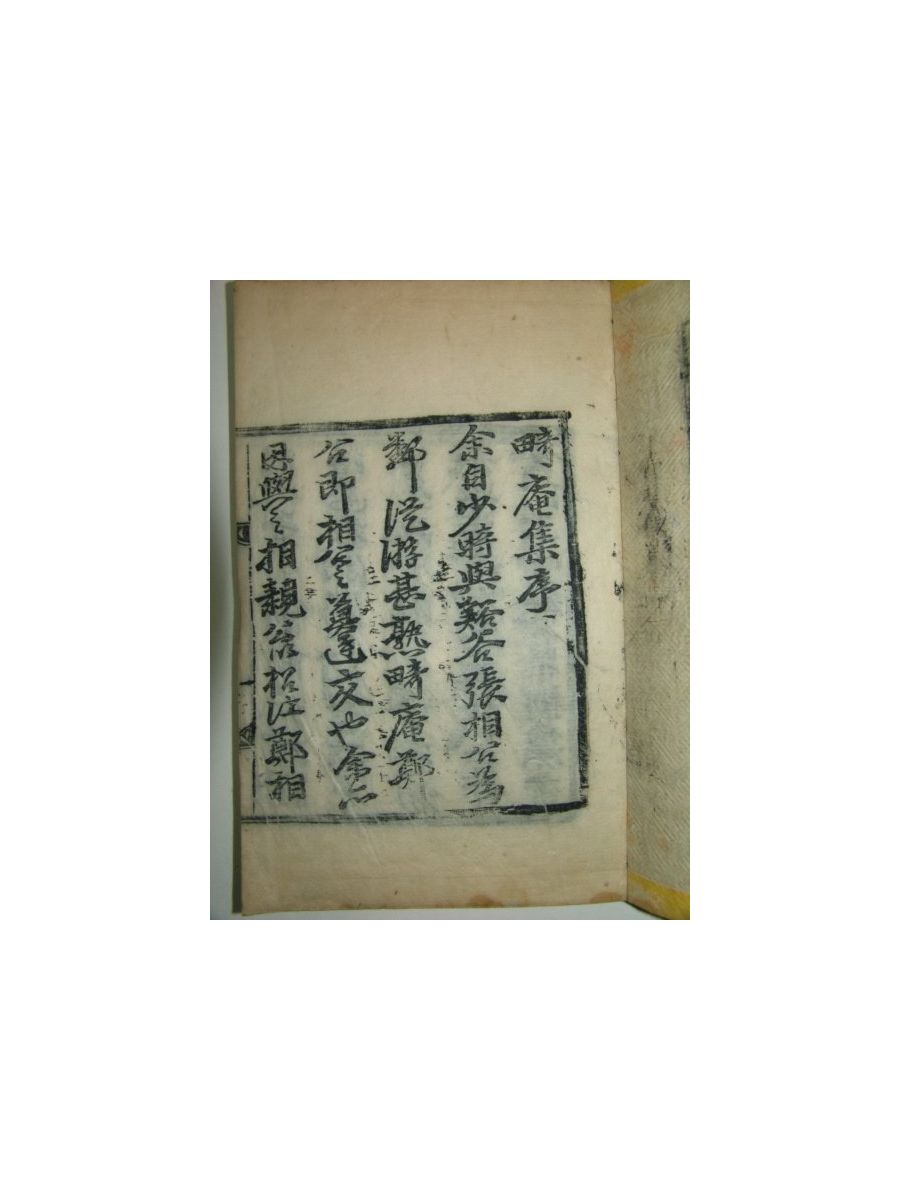 畸庵集序
余自少時與谿谷張相公爲
鄰從游甚熟畸庵鄭
公即相公莫逆交也余亦
因與之相親後松江鄭相